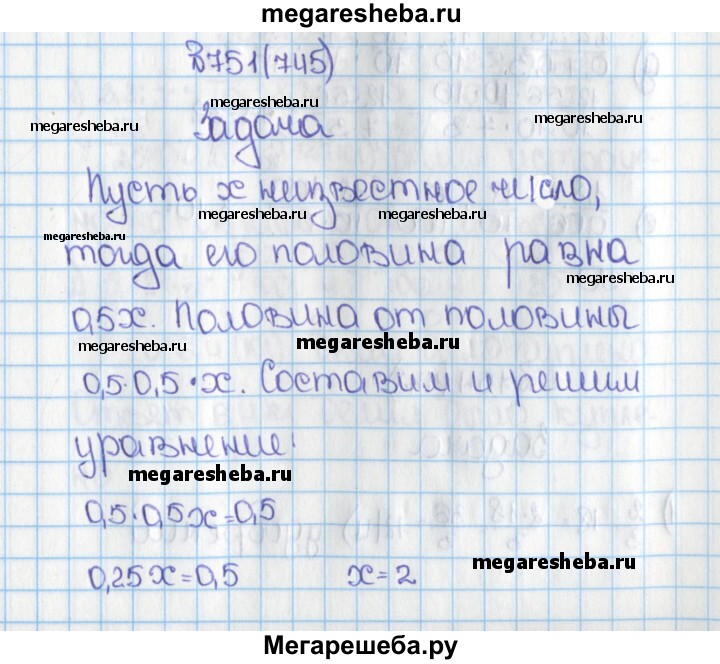 megaresheba.ru
№751(745)
megaresheba.ru
megaresheba.ru
Задача
megaresheba.ru
Пусть x неизвестное число,
megaresheba.ru
megaresheba.ru
megaresheba.ru
тогда его половина равна
megaresheba.ru
0,5x. Половина от половины
megaresheba.ru
megaresheba.ru
0,5·0,5·x. Составим и решим
уравнение:
megaresheba.ru
0,5·0,5x=0,5
megaresheba.ru
0,25x=0,5 x=2
Мегарешеба.ру